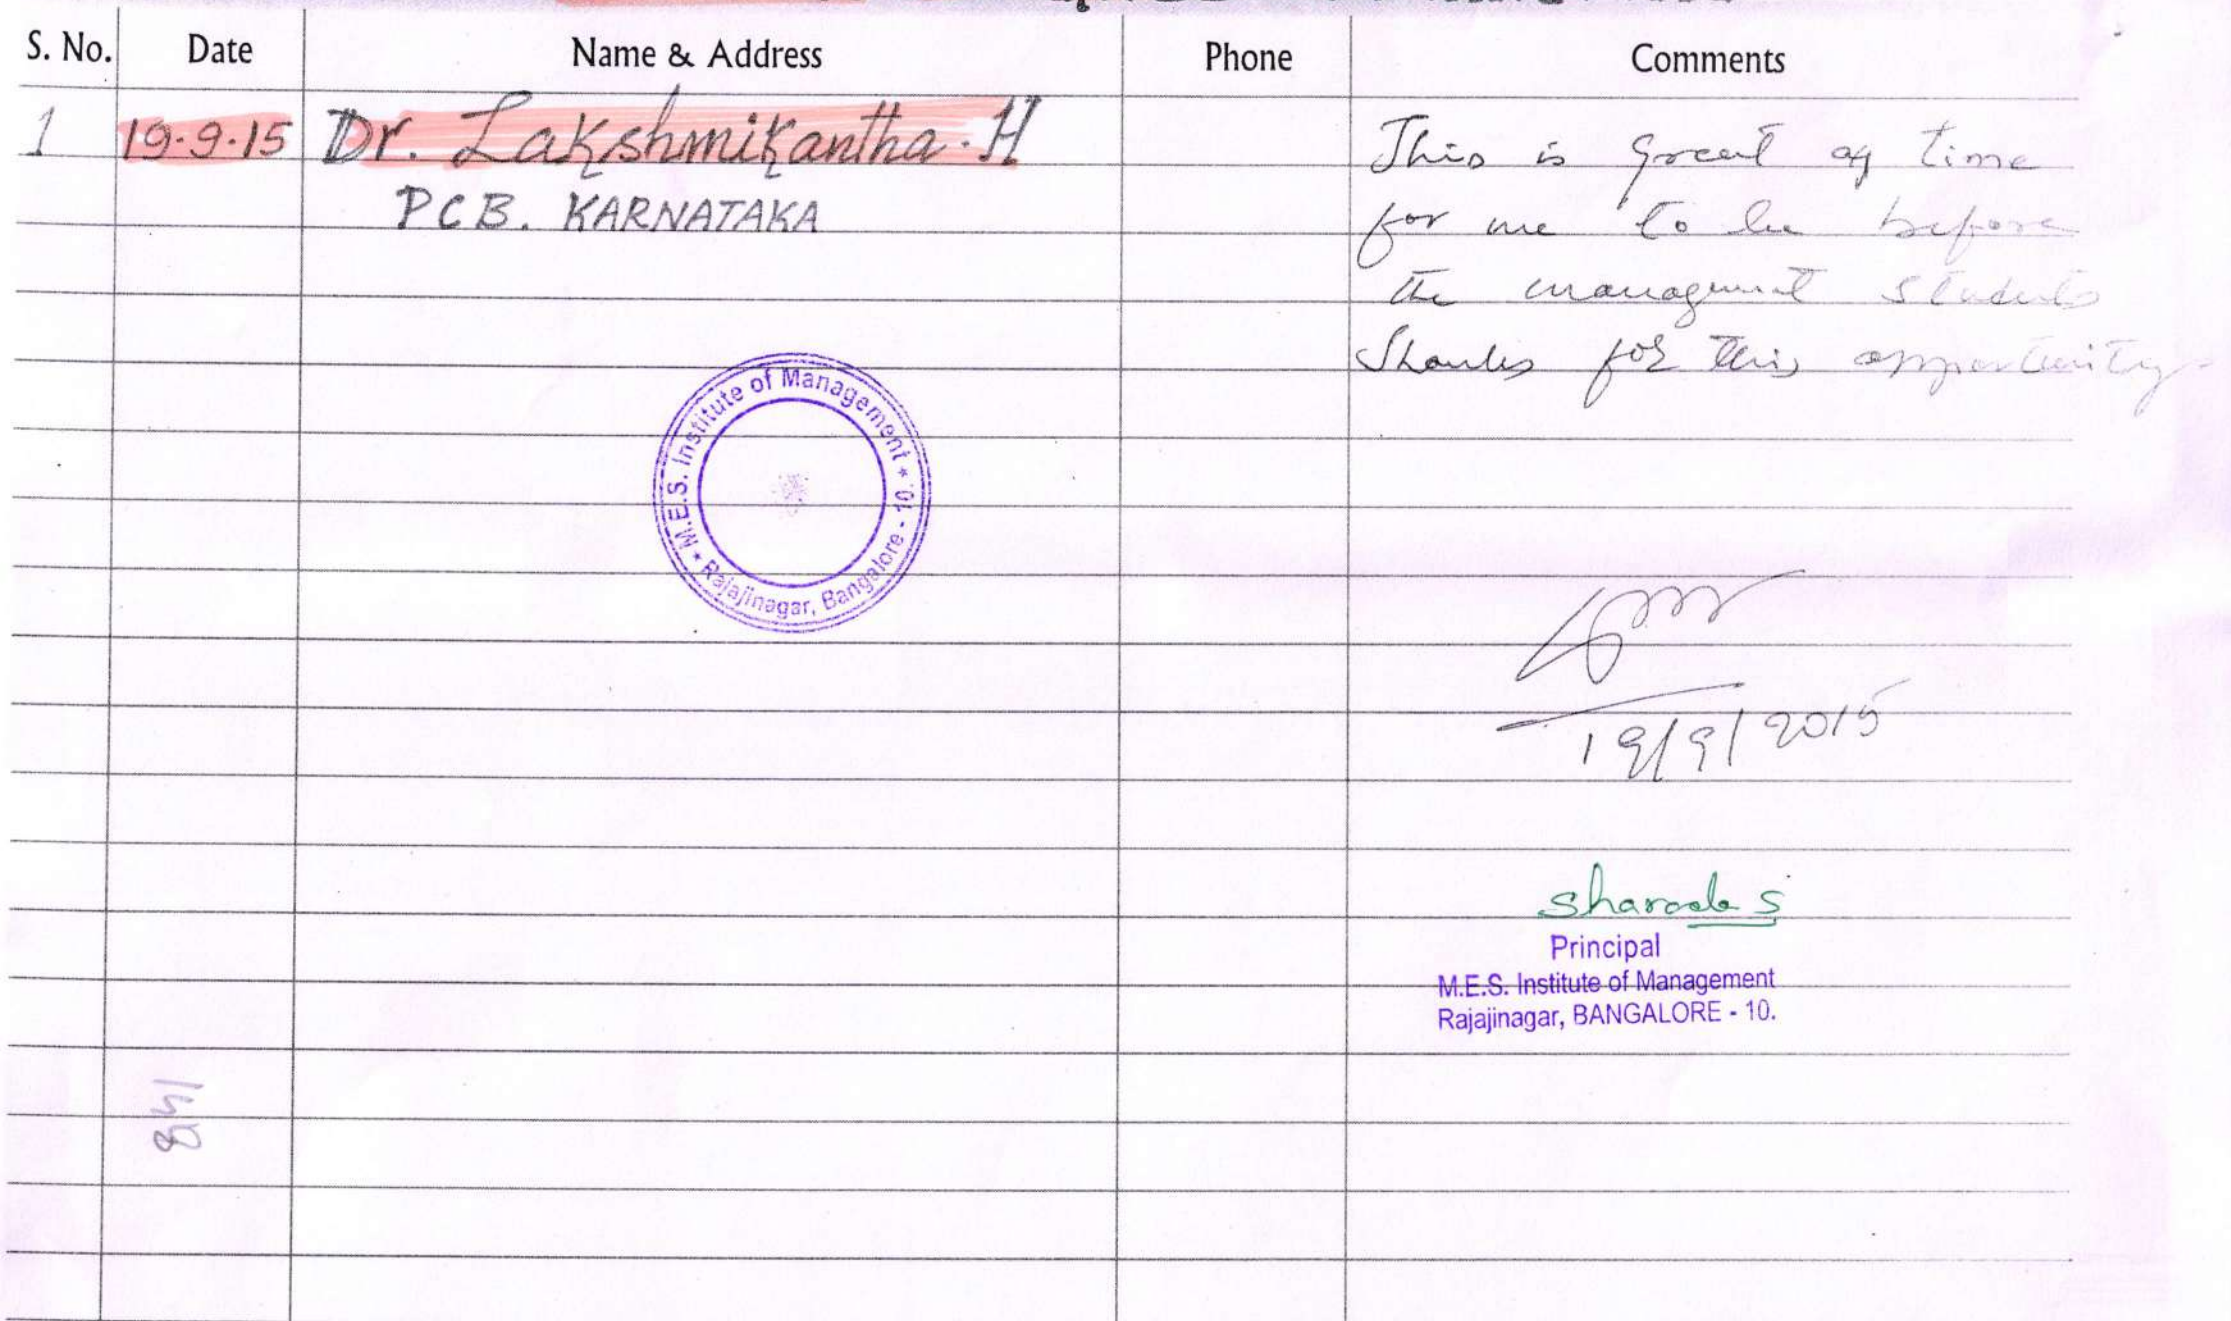 S. No. Date Name & Address Phone Comments
1 19.9.15 Dr. Lakshmikantha. H
PCB. KARNATAKA
This is great of time
for me to be before
the management students
Thanks for this opportunity
* M.E.S. Institute of Management *
Rajajinagar, Bangalore - 10.
19/9/2015
Sharada S
Principal
M.E.S. Institute of Management
Rajajinagar, BANGALORE - 10.